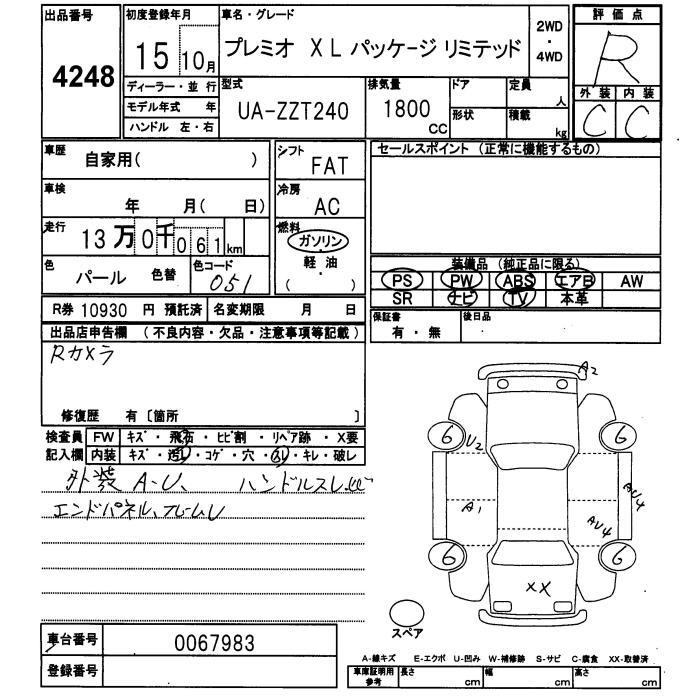 出品番号 4248
初度登録年月 15 10月
車名・グレード
プレミオ XLパッケージ リミテッド
2WD
・
4WD
評価点
R
外装 内装
C C
ディーラー・並行
モデル年式 年
ハンドル 左・右
型式
UA-ZZT240
排気量
1800 CC
ドア
形状
定員 人
積載 kg
車歴 自家用( )
シフト FAT
セールスポイント (正常に機能するもの)
車検 年 月( 日)
冷房 AC
走行 13万0千061km
燃料
ガソリン
・
軽油
( )
色 パール 色替
色コード 051
装備品 (純正品に限る)
PS PW ABS エアB AW
SR ナビ TV 本革
R券 10930 円 預託済
名変期限 月 日
保証書
有・無
後日品
出品店申告欄 (不良内容・欠品・注意事項等記載)
Rカメラ
修復歴 有〔箇所 〕
検査員 FW キズ・飛石・ヒビ割・リペア跡・X要
記入欄 内装 キズ・汚レ・コゲ・穴・スレ・キレ・破レ
外装 A-U、
エンドパネル、フレームU
A2
6 U2 6
A1 AU4 AU4
6 6
XX
スペア
車台番号 0067983
登録番号
A-線キズ E-エクボ U-凹み W-補修跡 S-サビ C-腐食 XX-取替済
車庫証明用
参考
長さ cm 幅 cm 高さ cm